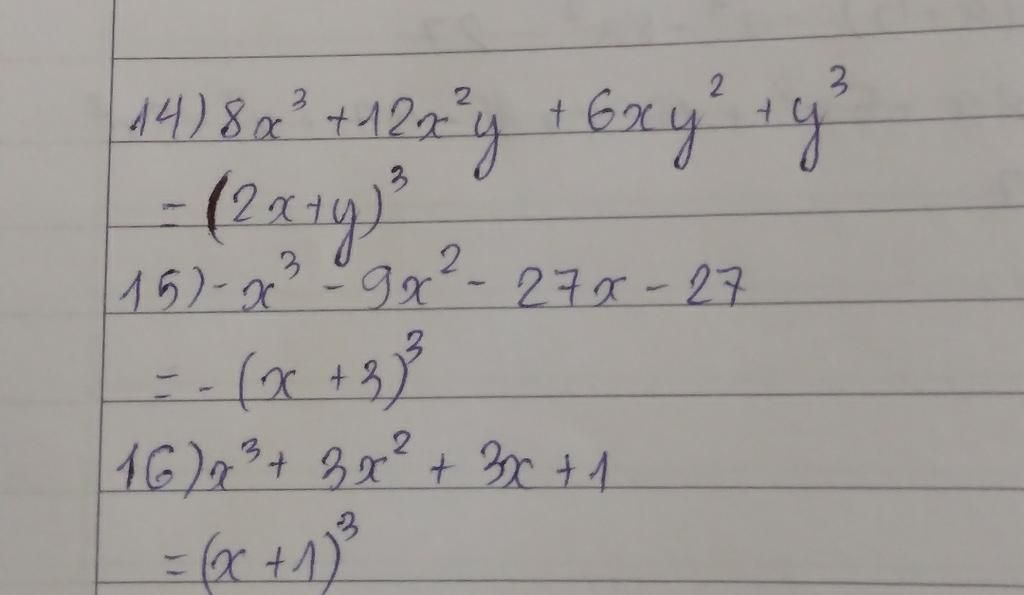 14) 8x³ + 12x²y + 6xy² + y³
= (2x+y)³
15) - x³ - 9x² - 27x - 27
= - (x + 3)³
16) x³ + 3x² + 3x + 1
= (x + 1)³